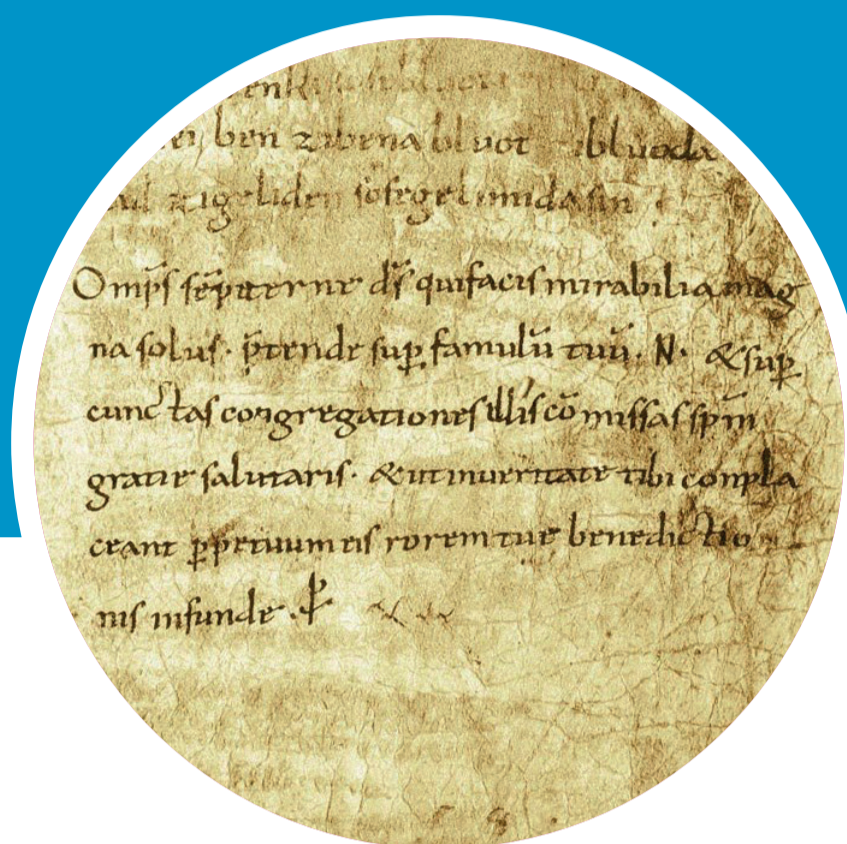 ben zibena bluot bluoda
zigeliden sosegelimida sin
Omp̄s sēpiterne ds̄ quifacis mirabilia mag
na solus· p̄tende sup̲ famulū tuū· N· &sup̲
cunctas congregationes illis cōmissas sp̄m
gratie salutaris· &utinueritate tibi conpla
ceant p̲petuum eis rorem tue benedictio
nis infunde·